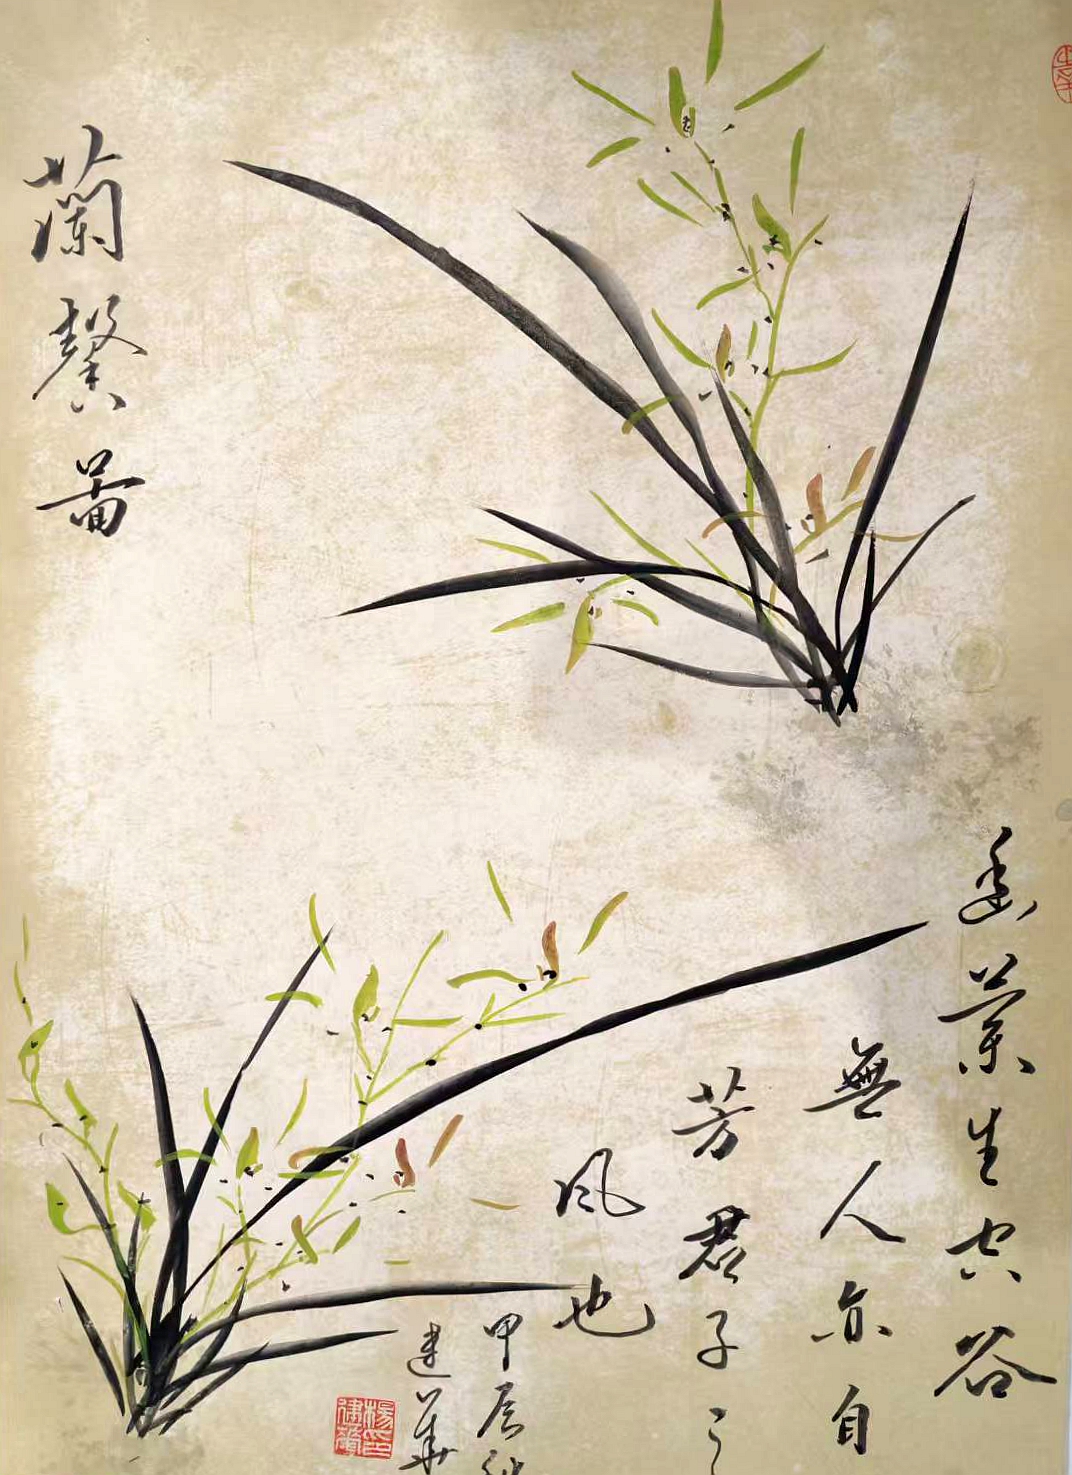 蘭馨啚
幽蘭生空谷
無人亦自
芳君子之
風也
甲辰秋
建華
楊建華印